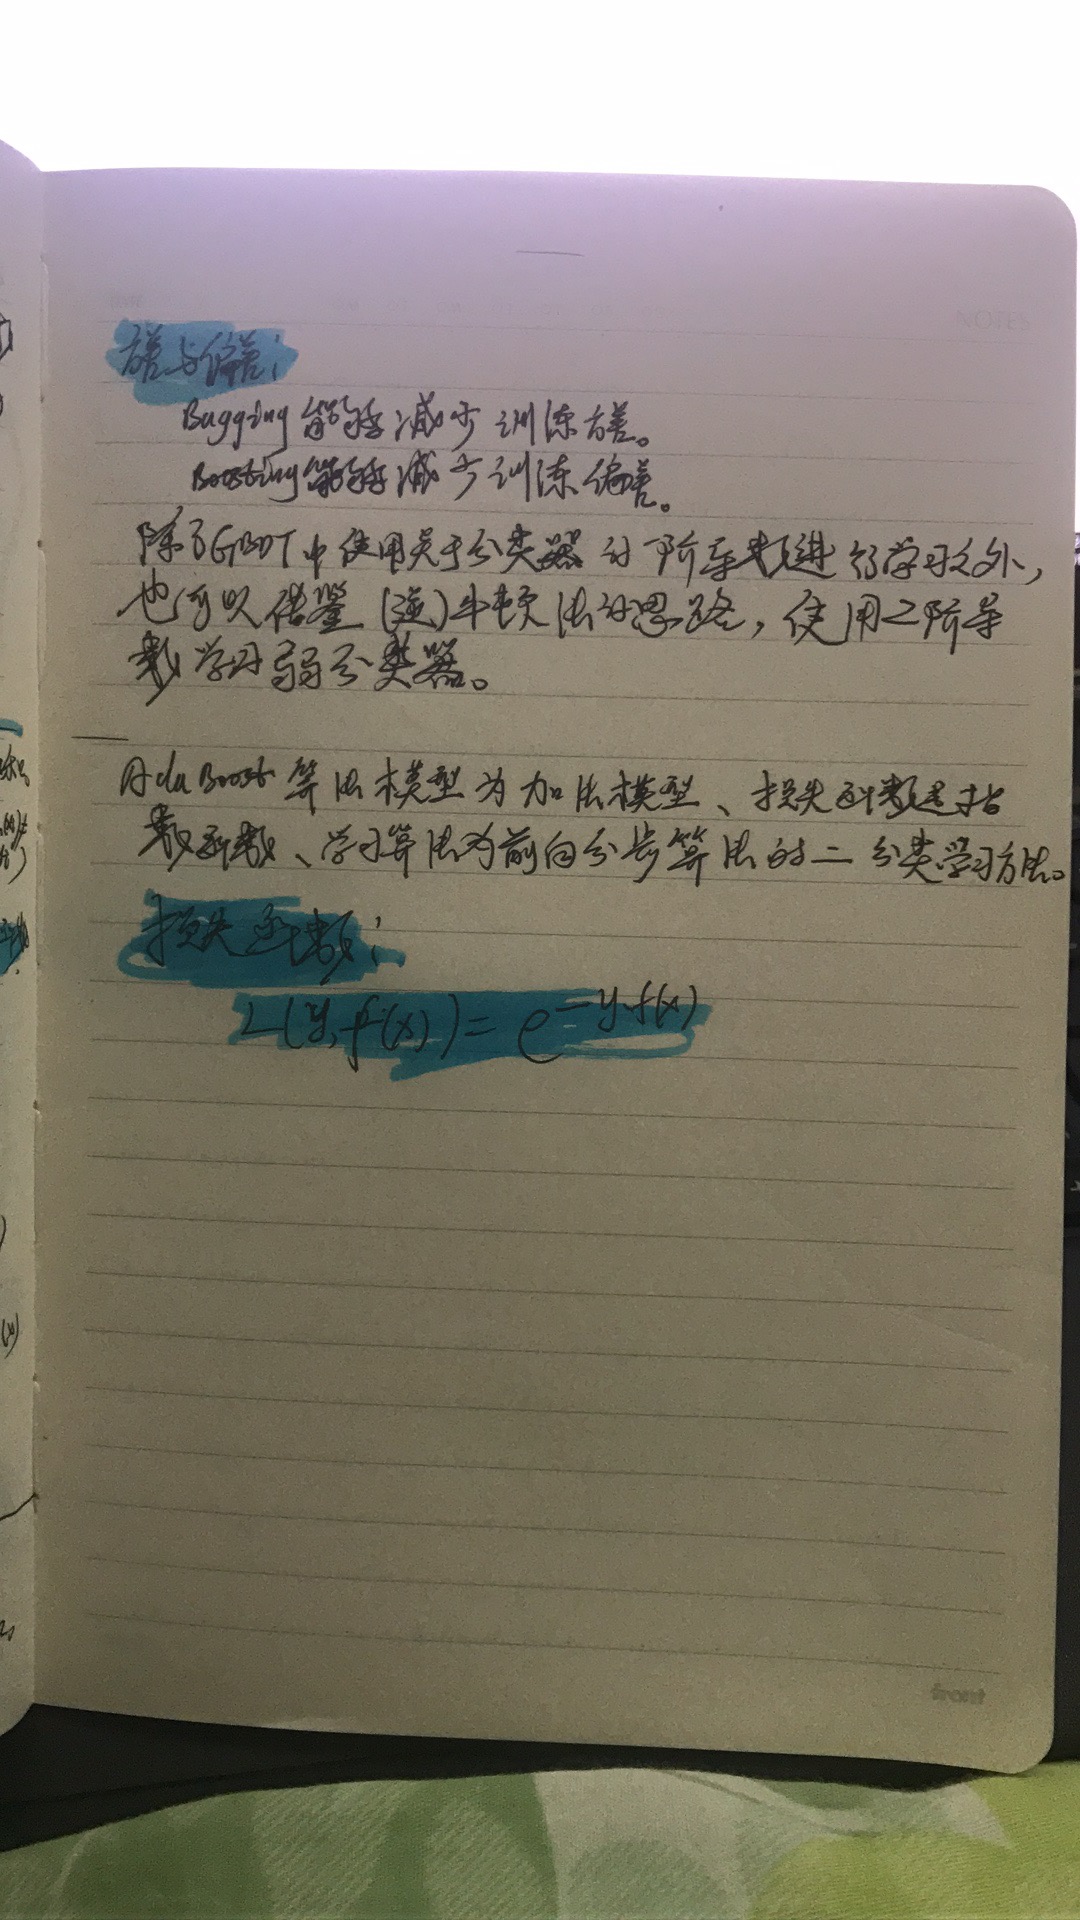 NOTES
方差与偏差：
Bagging 能够减少训练方差。
Boosting能够减少训练偏差。
除了GBDT中使用关于分类器的一阶导数进行学习之外，
也可以借鉴(逆)牛顿法的思路，使用二阶导
数学习弱分类器。
AdaBoost 算法模型为加法模型、损失函数是指
数函数、学习算法为前向分步算法的二分类学习方法。
损失函数：
L(y,f(x))=e^{-y.f(x)}
front